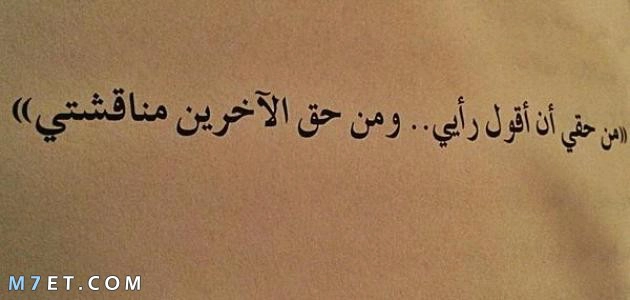 «من حقي أن أقول رأيي.. ومن حق الآخرين مناقشتي»
M7ET.COM